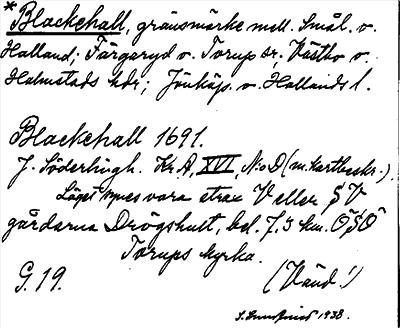 *Blackehall, gränsmärke mell. Smål. o.
Halland; Färgaryd o. Torup sr. Västbo o.
Halmstads hdr; Jönköp. o. Hallands l.
Blackehall 1691.
J. Söderlingh. Kr A, XVI, N:o D (m. kartbeskr.).
Läget synes vara strax V eller SV
gårdarna Drögshult, bel. 7,3 km. ÖSÖ
Torups kyrka.
G. 19. (Vänd!)
1938.